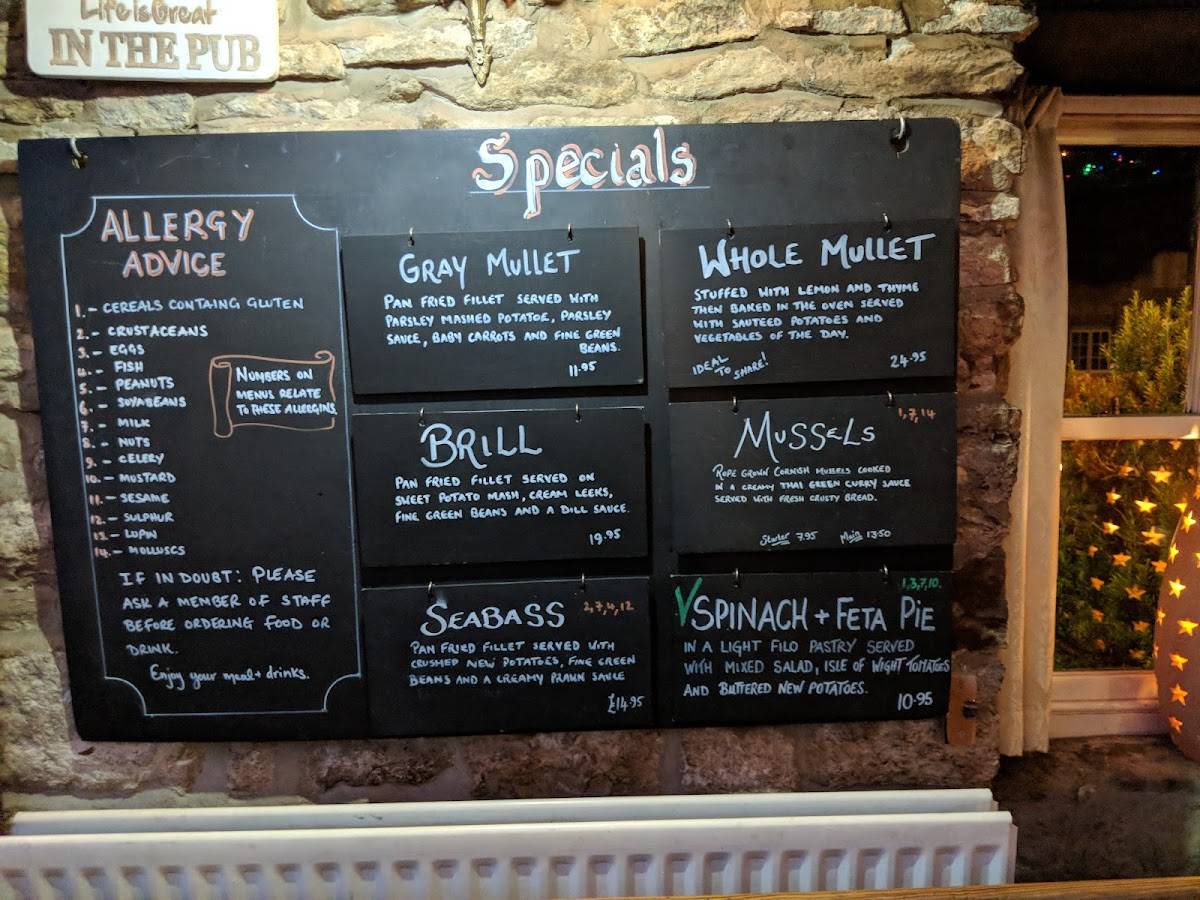 Life is Great
IN THE PUB
Specials
ALLERGY
ADVICE
1.- CEREALS CONTAING GLUTEN
2.- CRUSTACEANS
3.- EGGS
4.- FISH
5.- PEANUTS
6.- SOYABEANS
7.- MILK
8.- NUTS
9.- CELERY
10.- MUSTARD
11.- SESAME
12.- SULPHUR
13.- LUPIN
14.- MOLLUSCS
NUMBERS ON
MENUS RELATE
TO THESE ALLERGINS
IF IN DOUBT: PLEASE
ASK A MEMBER OF STAFF
BEFORE ORDERING FOOD OR
DRINK.
Enjoy your meal + drinks.
GRAY MULLET
PAN FRIED FILLET SERVED WITH
PARSLEY MASHED POTATOE, PARSLEY
SAUCE, BABY CARROTS AND FINE GREEN
BEANS.
11.95
WHOLE MULLET
STUFFED WITH LEMON AND THYME
THEN BAKED IN THE OVEN SERVED
WITH SAUTEED POTATOES AND
VEGETABLES OF THE DAY.
IDEAL
TO SHARE!
24.95
BRILL
PAN FRIED FILLET SERVED ON
SWEET POTATO MASH, CREAM LEEKS,
FINE GREEN BEANS AND A DILL SAUCE.
19.95
1,7,14
MUSSELS
ROPE GROWN CORNISH MUSSELS COOKED
IN A CREAMY THAI GREEN CURRY SAUCE
SERVED WITH FRESH CRUSTY BREAD.
Starter 7.95 Main 13.50
SEABASS 2,7,4,12
PAN FRIED FILLET SERVED WITH
CRUSHED NEW POTATOES, FINE GREEN
BEANS AND A CREAMY PRAWN SAUCE
£14.95
1,3,7,10.
V SPINACH + FETA PIE
IN A LIGHT FILO PASTRY SERVED
WITH MIXED SALAD, ISLE OF WIGHT TOMATOES
AND BUTTERED NEW POTATOES.
10.95